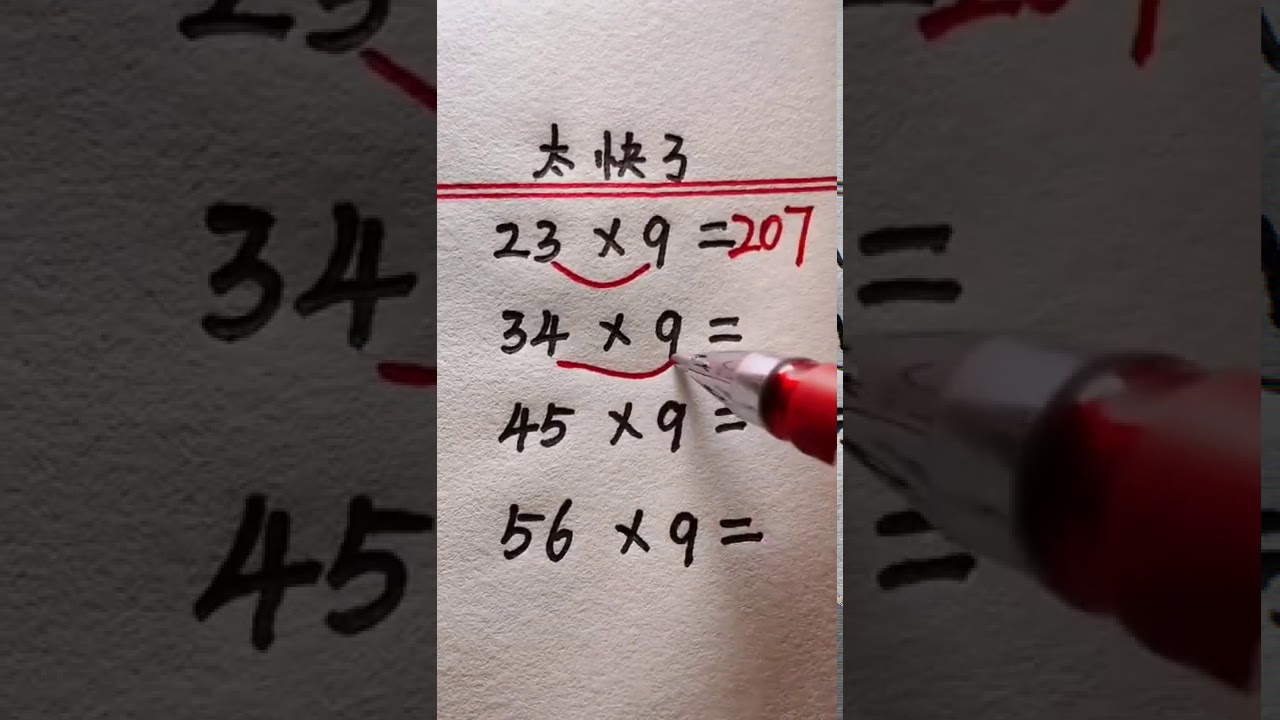 太快了
23 × 9 = 207
34 × 9 =
45 × 9 =
56 × 9 =